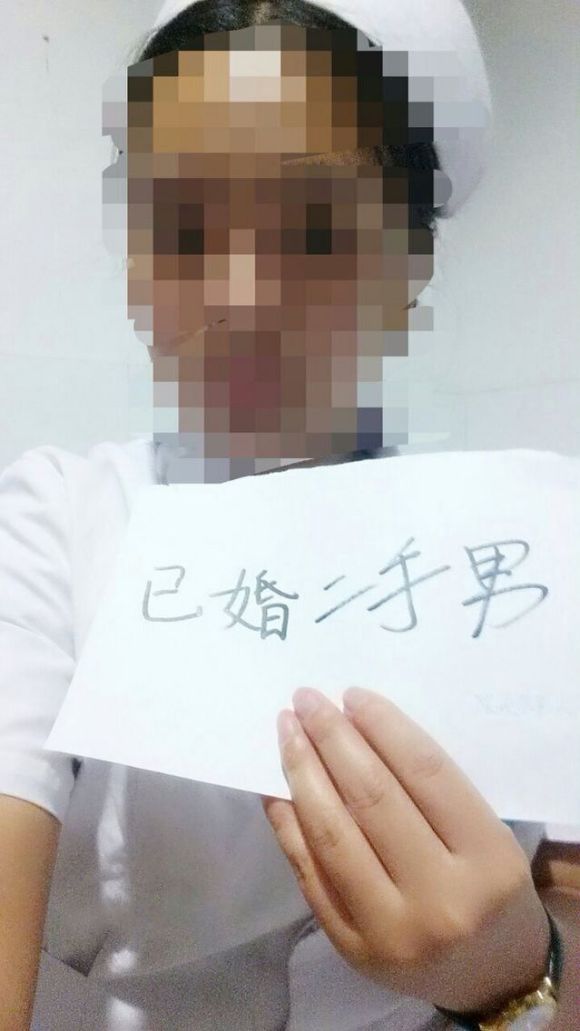 已婚二手男